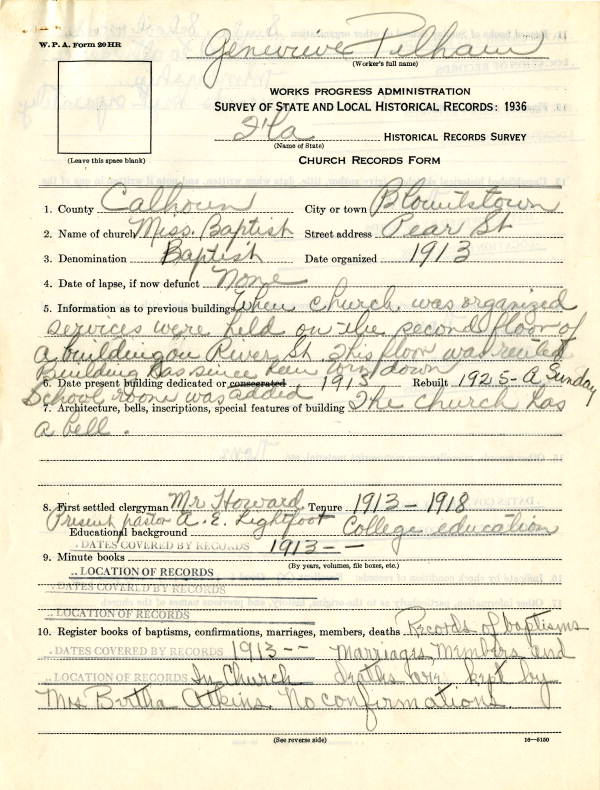 W. P. A. Form 20 HR
Genevieve Pelham
(Worker's full name)
WORKS PROGRESS ADMINISTRATION
SURVEY OF STATE AND LOCAL HISTORICAL RECORDS: 1936
Fla HISTORICAL RECORDS SURVEY
(Name of State)
(Leave this space blank)
CHURCH RECORDS FORM
1. County Calhoun City or town Blountstown
2. Name of church Miss. Baptist Street address Pear St
3. Denomination Baptist Date organized 1913
4. Date of lapse, if now defunct None
5. Information as to previous buildings When church was organized
services were held on the second floor of
a building on River St. This floor was rented
Building has since been torn down
6. Date present building dedicated or consecrated 1913 Rebuilt 1925 - A Sunday
School room was added
7. Architecture, bells, inscriptions, special features of building The church has
a bell.
8. First settled clergyman Mr Howard Tenure 1913 - 1918
Present pastor A. E. Lightfoot College education
Educational background
DATES COVERED BY RECORDS 1913 - -
9. Minute books
(By years, volumes, file boxes, etc.)
LOCATION OF RECORDS
DATES COVERED BY RECORDS
LOCATION OF RECORDS
10. Register books of baptisms, confirmations, marriages, members, deaths Records of baptisms
DATES COVERED BY RECORDS 1913 - - Marriages, Members and
LOCATION OF RECORDS In Church deaths are kept by
Mrs Bertha Atkins. No confirmations.
(See reverse side)
16—5150